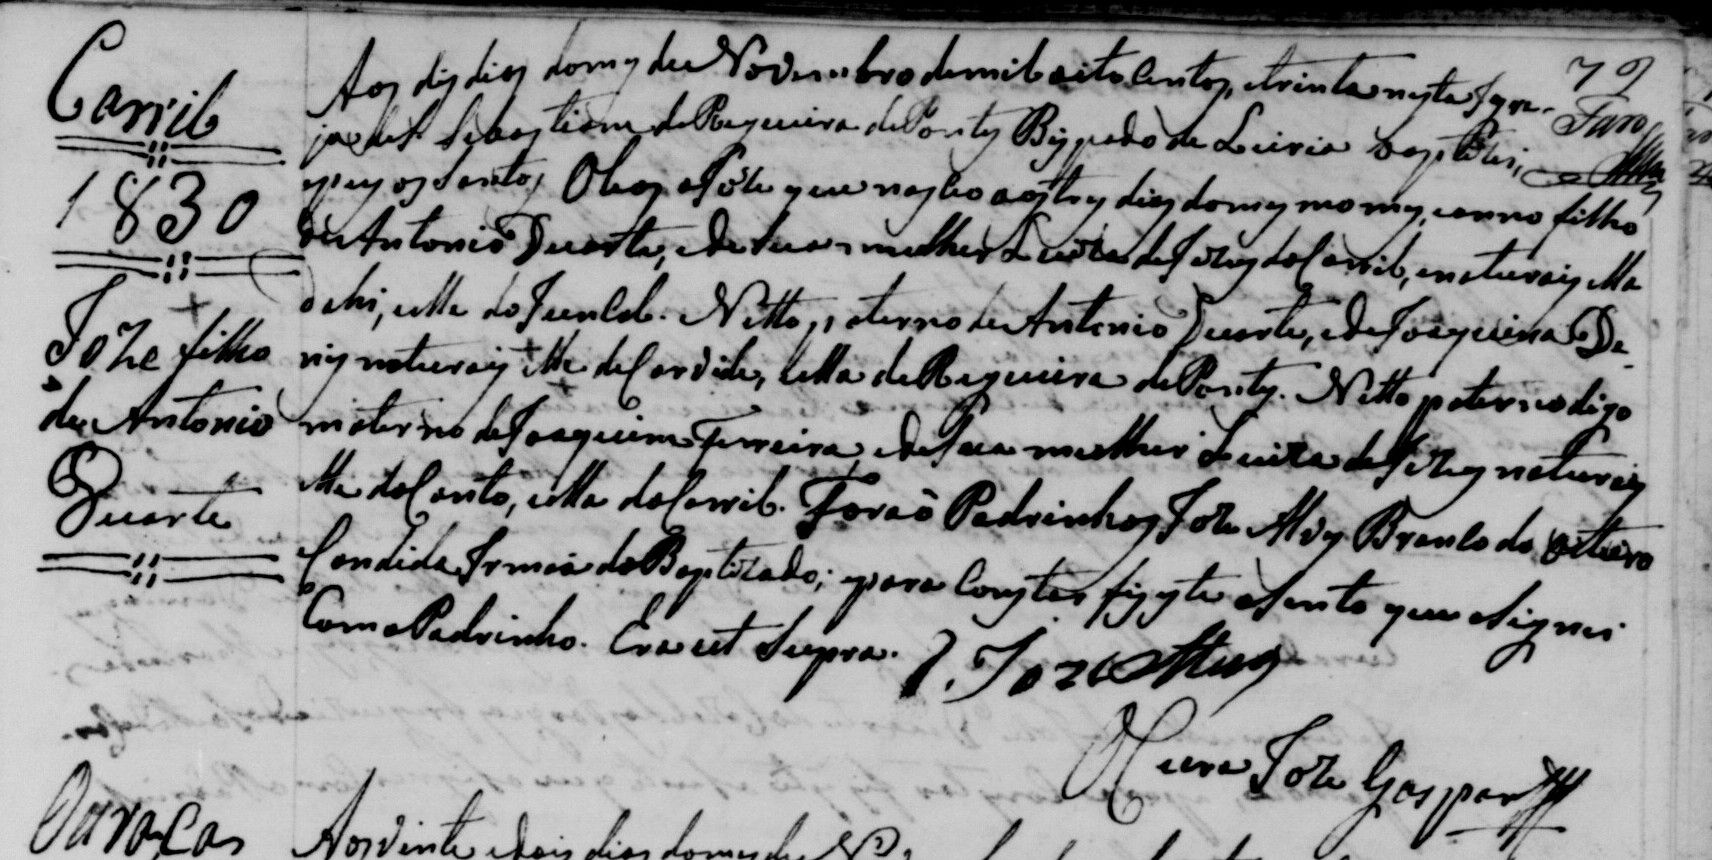 72
Carril
1830
Joze filho
de Antonio
Duarte
Aos dis dias do mes de Novembro de mil oito Centos, e trinta nesta Igre-
ja de S. Sebastiam da Regueira de Pontes Bispado de Leiria baptizei,
e puz os Santos Oleos a Joze que nasceo aos tres dias do mes mo mes, e anno filho
de Antonio Duarte, e de sua mulher Luiza de Jezus do Carril, e naturais elle
dahi, ella do Juncal. Netto paterno de Antonio Duarte, e de Joaquina De
nis naturais elle de Carvide, ella da Regueira de Pontes. Netto paterno digo
materno de Joaquim Ferreira e de sua mulher Luiza de Jezus naturais
elle do Couto, ella do Carril. Foraõ Padrinhos Joze Alvs Branco do
Candida Irmãa do Baptizado; e para Constar fiz este asento que asignei
Com o Padrinho. Era ut Supra.
O Cura Joze Gaspar
Aos vinte e dois dias do mes de